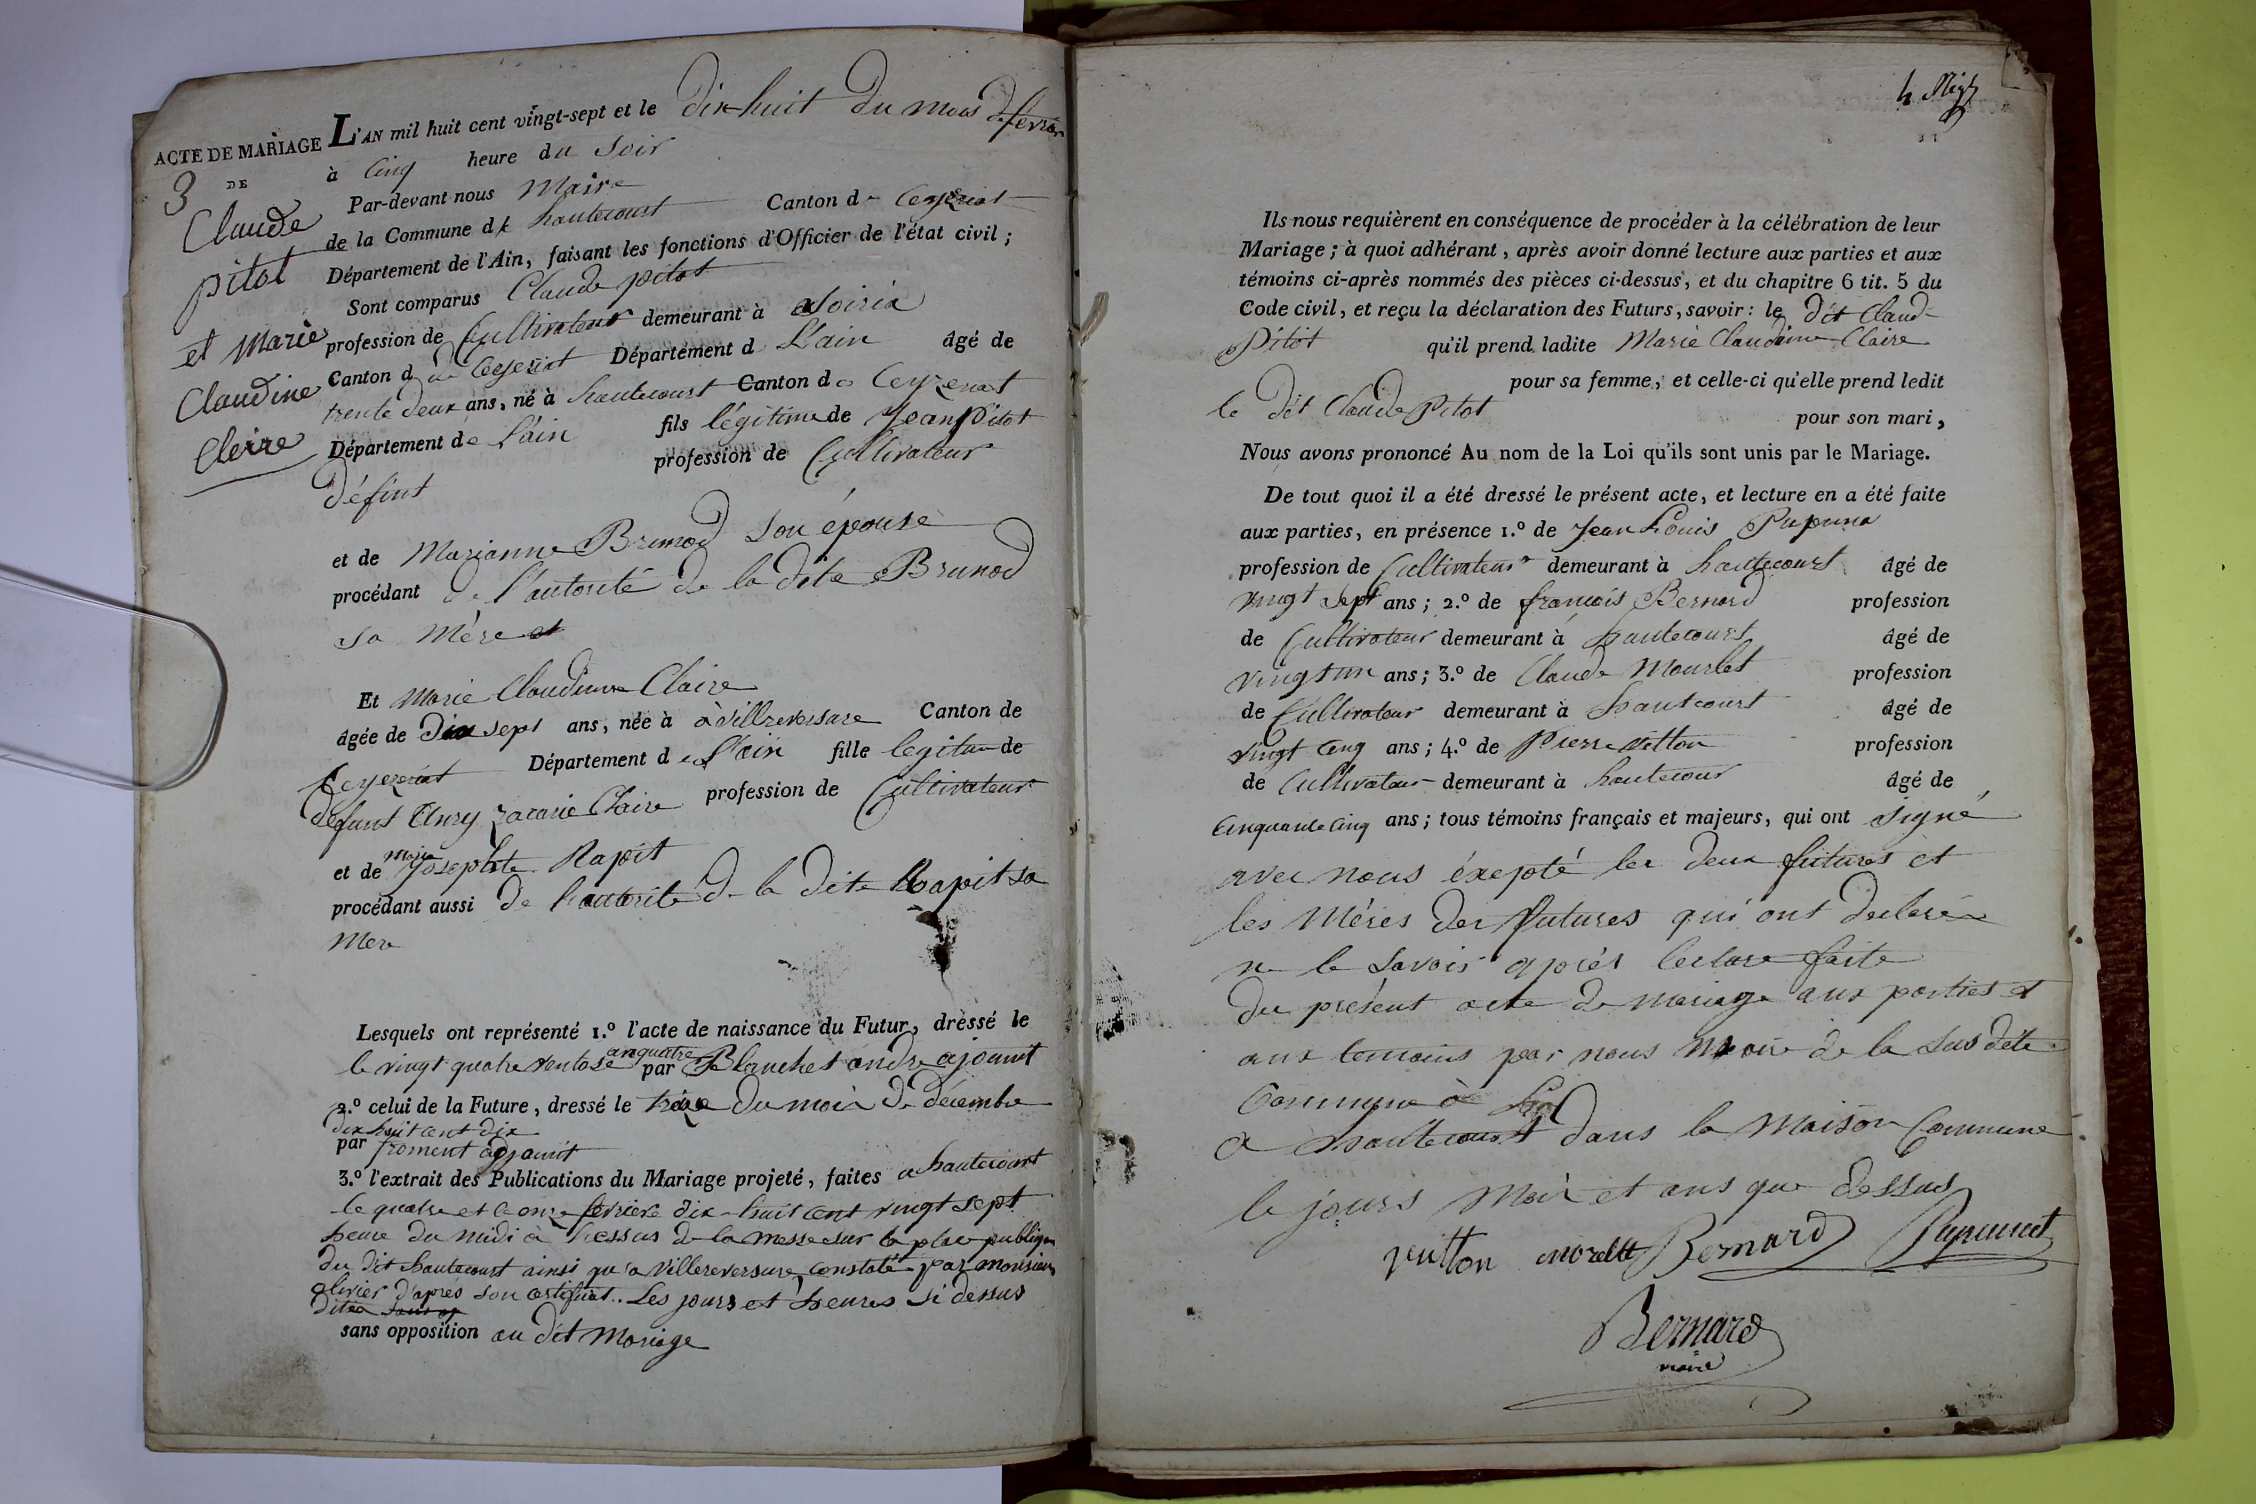 ACTE DE MARIAGE
DE
3
Claude
pitot
et Marie
Claudine
Cleire
L'AN mil huit cent vingt-sept et le dix-huit du mois de fevrier
à Cinq heure du Soir
Par-devant nous Maire
de la Commune de hautecourt Canton de Ceyzeriat
Département de l'Ain, faisant les fonctions d'Officier de l'état civil ;
Sont comparus Claude pitot
profession de Cultivateur demeurant à Soiria
Canton de Ceyzeriat Département d L'ain âgé de
trente deux ans, né à hautecourt Canton de Ceyzeriat
Département de L'ain fils légitime de Jean Pitot
profession de Cultivateur
défint
et de Marianne Brunod son épouse
procédant de l'autorité de la dite Brunod
sa Mère et
Et Marie Claudinne Claire
âgée de dix sept ans, née à à villreversure Canton de
Ceyzeriat Département de L'ain fille legitime de
défunt Anry zacarie Claire profession de Cultivateur
et de Marie Josephte Rapit
procédant aussi de l'autorité de la dite Rapit sa
Mere
Lesquels ont représenté 1.º l'acte de naissance du Futur, dressé le
le vingt quatre ventose an quatre par Blanchet andre ajouint
2.º celui de la Future, dressé le treize du mois de décembre
dix huit cent dix
par froment adjouint
3.º l'extrait des Publications du Mariage projeté, faites a hautecourt
le quatre et le onze fevriere dix-huit cent vingt sept
heure du midi à l'essus de la messe sur la place publique
du dit hautecourt ainsi qu'a Villereversure constaté par monsieur
olivier d'aprés son certificat.. Les jours et heures si dessus
dites sans op
sans opposition au dit Mariage
Ils nous requièrent en conséquence de procéder à la célébration de leur
Mariage ; à quoi adhérant, après avoir donné lecture aux parties et aux
témoins ci-après nommés des pièces ci-dessus, et du chapitre 6 tit. 5 du
Code civil, et reçu la déclaration des Futurs, savoir : le dit Claude
Pitot qu'il prend ladite Marie Claudine Claire
pour sa femme, et celle-ci qu'elle prend ledit
le dit Claude Pitot pour son mari,
Nous avons prononcé Au nom de la Loi qu'ils sont unis par le Mariage.
De tout quoi il a été dressé le présent acte, et lecture en a été faite
aux parties, en présence 1.º de Jean Louis
profession de Cultivateur demeurant à hautecourt âgé de
vingt sept ans ; 2.º de francois Bernard profession
de Cultivateur demeurant à hautecourt âgé de
vingt un ans ; 3.º de Claude Mourlet profession
de Cultivateur demeurant à hautcourt âgé de
vingt cinq ans ; 4.º de Pierre vitton profession
de Cultivateur demeurant à hautecour âgé de
cinquante cinq ans ; tous témoins français et majeurs, qui ont signé
avec nous éxepté les deux futures et
les Méres des futures qui ont declaré
ne le savoir aprés lecture faite
du présent acte de mariage aux parties et
aux temoins par nous Maire de la sus dite
Commune à
a hautecourt dans la Maison Commune
le jours Mois et ans que dessus
vuitton morelle Bernard Papunet
Bernard
maire